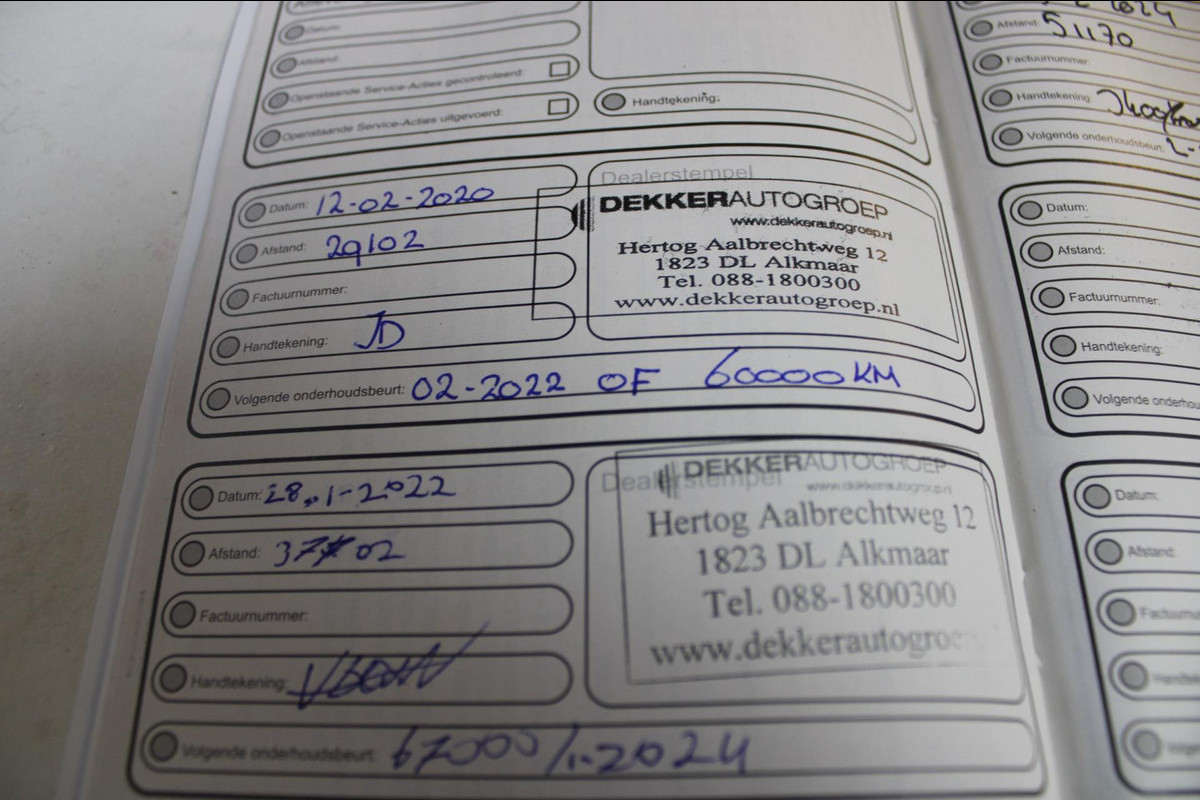 Datum:
Afstand:
Openstaande Service-Acties gecontroleerd:
Openstaande Service-Acties uitgevoerd:
Handtekening:
Datum: 12-02-2020
Afstand: 29102
Factuurnummer:
Handtekening: JD
Volgende onderhoudsbeurt: 02-2022 OF 60000 KM
Dealerstempel
DEKKERAUTOGROEP
www.dekkerautogroep.nl
Hertog Aalbrechtweg 12
1823 DL Alkmaar
Tel. 088-1800300
www.dekkerautogroep.nl
Datum: 28.1-2022
Afstand:
Factuurnummer:
Handtekening:
Volgende onderhoudsbeurt: 67000/1-2024
Dealerstempel
DEKKERAUTOGROEP
www.dekkerautogroep.nl
Hertog Aalbrechtweg 12
1823 DL Alkmaar
Tel. 088-1800300
www.dekkerautogroe
2024
Afstand: 51170
Factuurnummer:
Handtekening:
Volgende onderhoudsbeurt:
Datum:
Afstand:
Factuurnummer:
Handtekening:
Volgende onderhou
Datum:
Afstand:
Factuurnu